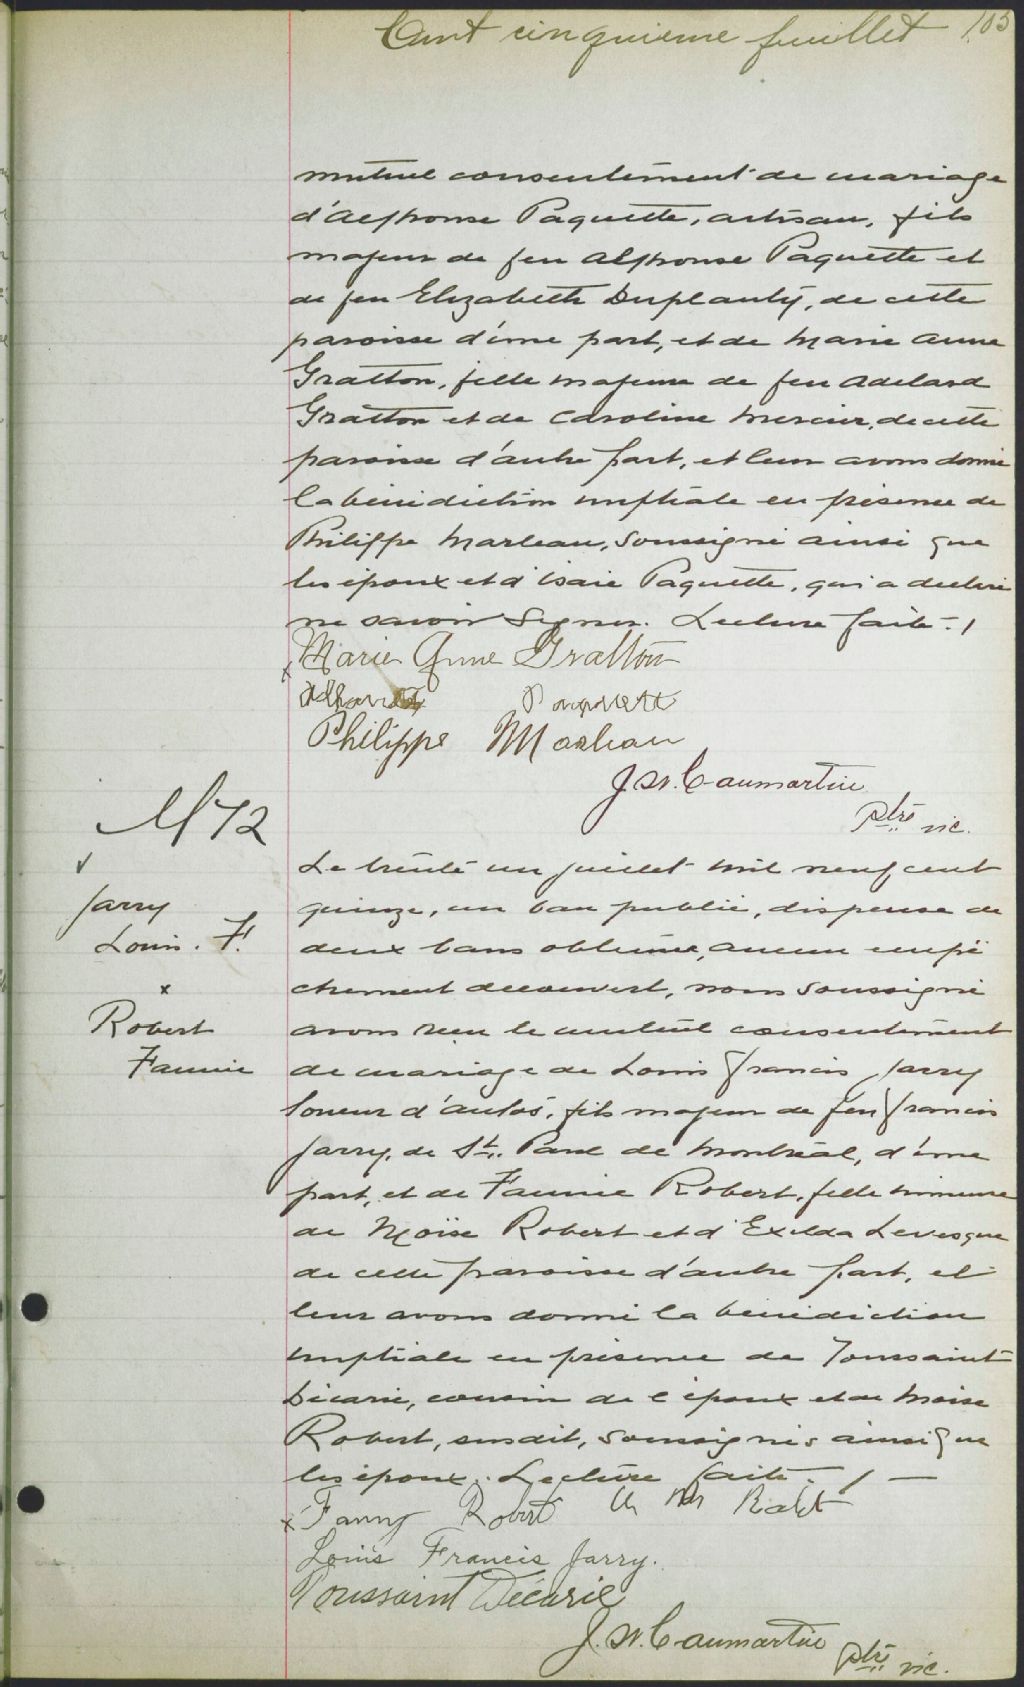 Cent cinquieme feuillet 105
mutuel consentement de mariage
d'Alphonse Paquette, artisan, fils
majeur de feu Alphonse Paquette et
de feu Elizabeth Duplanty, de cette
paroisse d'une part, et de Marie Anne
Gratton, fille majeure de feu Adelard
Gratton et de Caroline Mercier, de cette
paroisse d'autre part, et leur avons donné
la bénédiction nuptiale en présence de
Philippe Marleau, soussigné ainsi que
les époux et d'Isaïe Paquette, qui a déclaré
ne savoir signer. Lecture faite. /
x Marie Anne Gratton
Alphonse Paquette
Philippe Marleau
J. W. Caumartin
ptre vic.
M 72
Le trente un juillet mil neuf cent
Jarry
quinze, un ban publié, dispense de
Louis. F.
deux bans obtenue, aucun empê
x
chement découvert, nous soussigné
Robert
avons reçu le mutuel consentement
Fannie
de mariage de Louis Francis Jarry
loueur d'autos, fils majeur de feu Francis
Jarry, de St. Paul de Montréal, d'une
part, et de Fannie Robert, fille mineure
de Moïse Robert et d'Exilda Levesque
de cette paroisse d'autre part, et
leur avons donné la bénédiction
nuptiale en présence de Toussaint
Décarie, cousin de l'époux et de Moïse
Robert, susdit, soussignés ainsi que
les époux. Lecture faite. / —
x Fanny Robert
Louis Francis Jarry.
Toussaint Décarie
J. W. Caumartin
ptre vic.